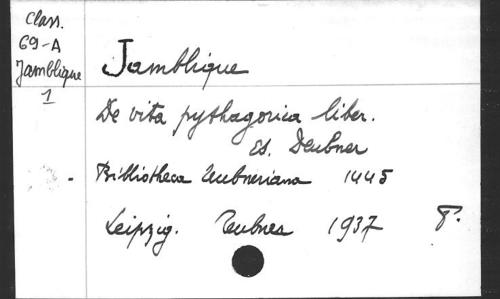 Class.
69-A
Jamblique
1
Jamblique
De vita pythagorica liber.
Ed. Deubner
Bibliotheca Teubneriana 1445
Leipzig. Teubner 1937 P.